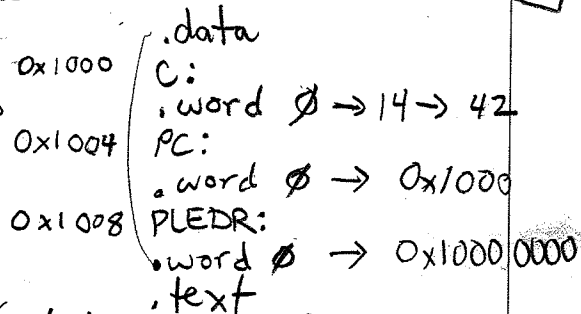 .data
0x1000 C:
.word Ø → 14 → 42
0x1004 PC:
.word Ø → 0x1000
0x1008 PLEDR:
.word Ø → 0x1000 0000
.text